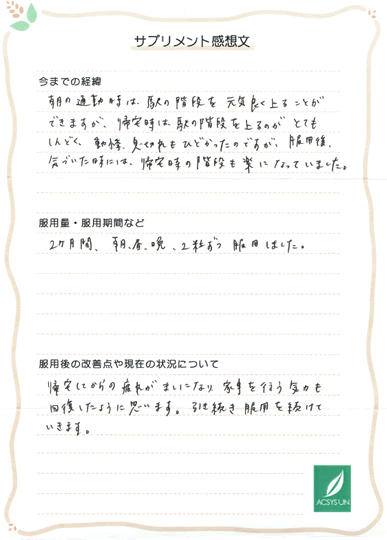 サプリメント感想文
今までの経緯
朝の通勤時は、駅の階段を元気良く上ることが
できますが、帰宅時は駅の階段を上るのがとても
しんどく、動悸、息切れもひどかったのですが、服用後、
気づいた時には、帰宅時の階段も楽になっていました。
服用量・服用期間など
2ヶ月間、朝、昼、晩、2粒ずつ服用しました。
服用後の改善点や現在の状況について
帰宅してからの疲れがましになり家事を行う気力も
回復したように思います。引き続き服用を続けて
いきます。
ACSYSUN